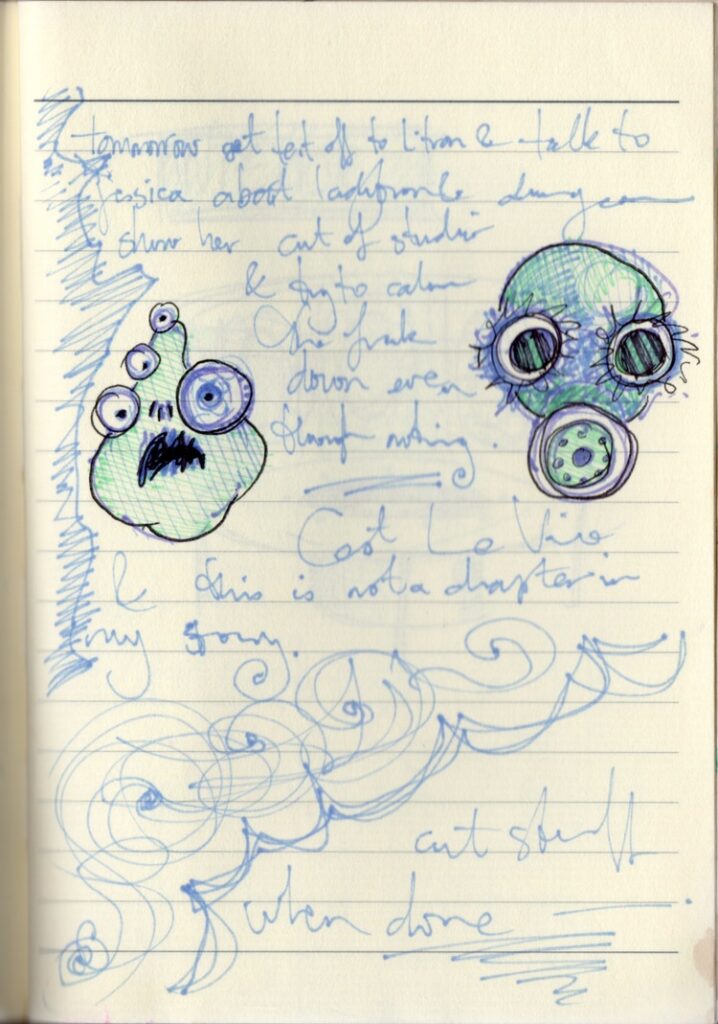 tomorrow get text off to & talk to
jessica about
show her cut of studio
& try to calm
the freak
down even
though nothing.
Cest La Vie
& this is not a chapter in
my story.
cut stuff
when done